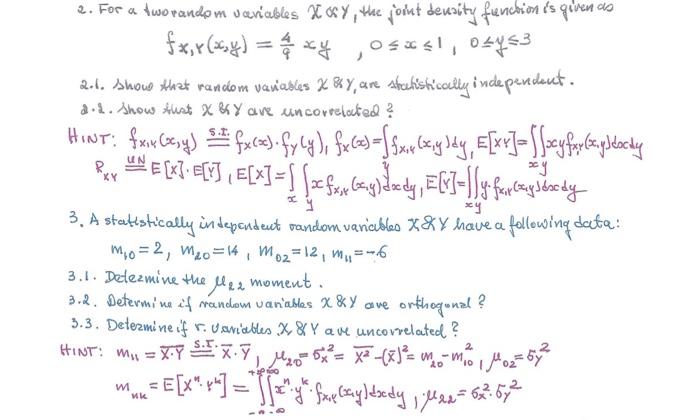 2. For a two random variables X & Y, the joint density function is given as
f_{X,Y}(x,y) = 4/9 xy , 0 ≤ x ≤ 1, 0 ≤ y ≤ 3
2.1. Show that random variables X & Y, are statistically independent.
2.2. Show that X & Y are uncorrelated?
HINT: f_{X,Y}(x,y) =^{S.I.} f_X(x) · f_Y(y), f_X(x) = ∫_y f_{X,Y}(x,y)dy, E[XY] = ∫_x∫_y xy f_{X,Y}(x,y)dxdy
R_{XY} =^{UN} E[X]·E[Y], E[X] = ∫_x∫_y x f_{X,Y}(x,y)dxdy, E[Y] = ∫_x∫_y y·f_{X,Y}(x,y)dxdy
3. A statistically independent random variables X & Y have a following data:
m_{10} = 2, m_{20} = 14, m_{02} = 12, m_{11} = -6
3.1. Determine the μ_{22} moment.
3.2. Determine if random variables X & Y are orthogonal?
3.3. Determine if r. variables X & Y are uncorrelated?
HINT: m_{11} = \overline{X·Y} =^{S.I.} \overline{X}·\overline{Y}, μ_{20} = σ_x^2 = \overline{X^2} - (\overline{X})^2 = m_{20} - m_{10}^2, μ_{02} = σ_y^2
m_{nk} = E[X^n·Y^k] = ∫_{-∞}^{+∞}∫_{-∞}^{+∞} x^n·y^k·f_{X,Y}(x,y)dxdy, μ_{22} = σ_x^2·σ_y^2